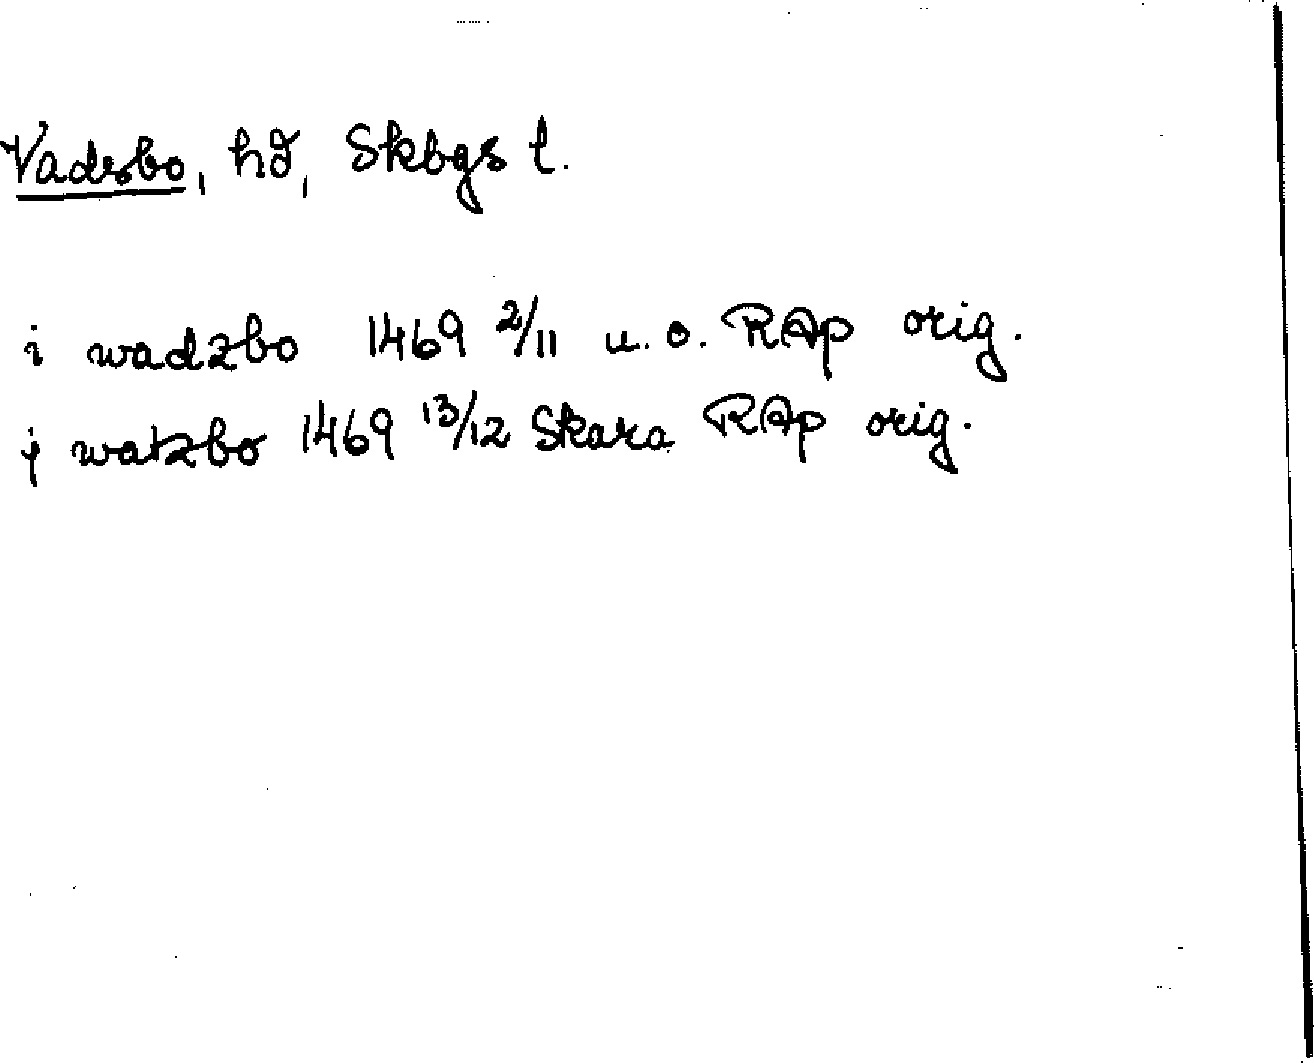 Vadsbo, hd, Skbgs l.
i wadzbo 1469 2/11 u. o. RAp orig.
j watzbo 1469 13/12 Skara RAp orig.